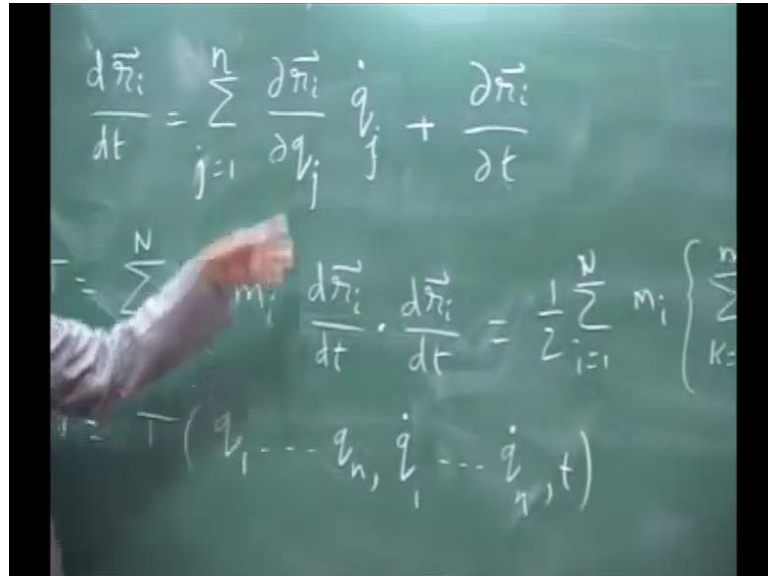 dr⃗ᵢ/dt = Σ_{j=1}^{n} ∂r⃗ᵢ/∂qⱼ q̇ⱼ + ∂r⃗ᵢ/∂t
T = Σ^{N} mᵢ dr⃗ᵢ/dt · dr⃗ᵢ/dt = 1/2 Σ_{i=1}^{N} mᵢ { Σ_{K=}^{n}
= T( q₁ ---- qₙ, q̇₁ ---- q̇ₙ, t)